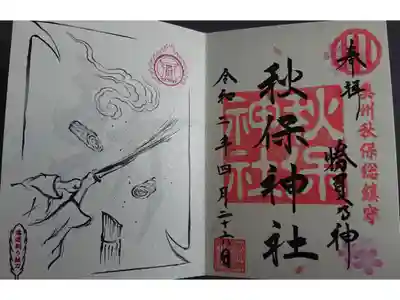 奉拝
奥州秋保総鎮守
勝負乃神
秋保神社
秋保神社
令和二年四月二十六日